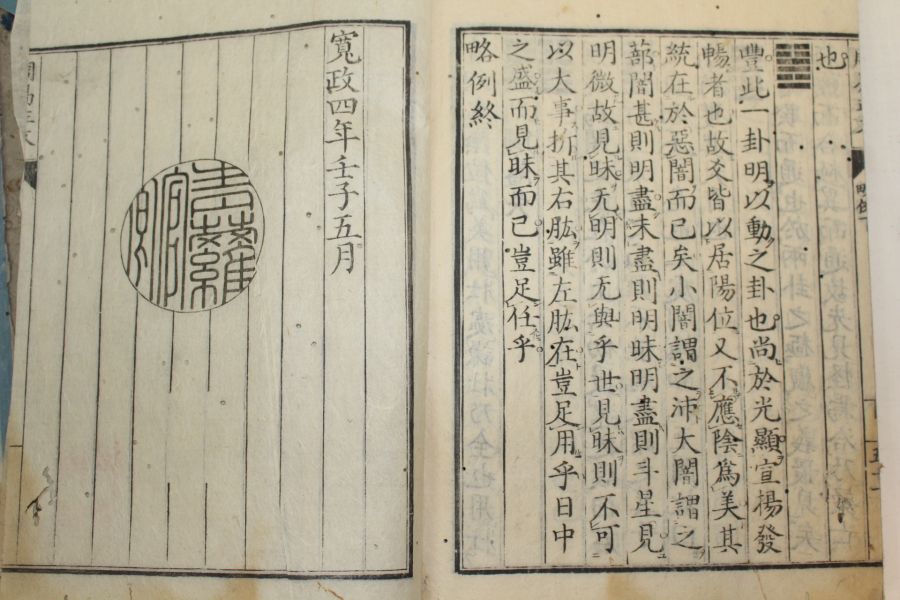 也
䷶
豐此一卦明以動之卦也尚於光顯宣揚發
暢者也故爻皆以居陽位又不應陰爲美其
統在於惡闇而已矣小闇謂之沛大闇謂之
蔀闇甚則明盡未盡則明昧明盡則斗星見
明微故見昧无明則无與乎世見昧則不可
以大事折其右肱雖左肱在豈足用乎日中
之盛而見昧而已豈足任乎
略例終
寬政四年壬子五月